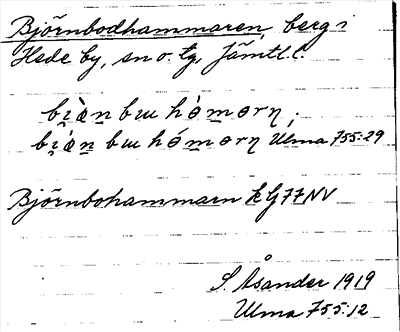 Björnbodhammaren, berg i
Hede by, sn o. tg, Jämtl. l.
bi̯ὰn bɯ hòmorn;
bi̯án bɯ hómorn Ulma 755:29
Björnbohammarn k G 77 NV
S. Åsander 1919
Ulma 755:12